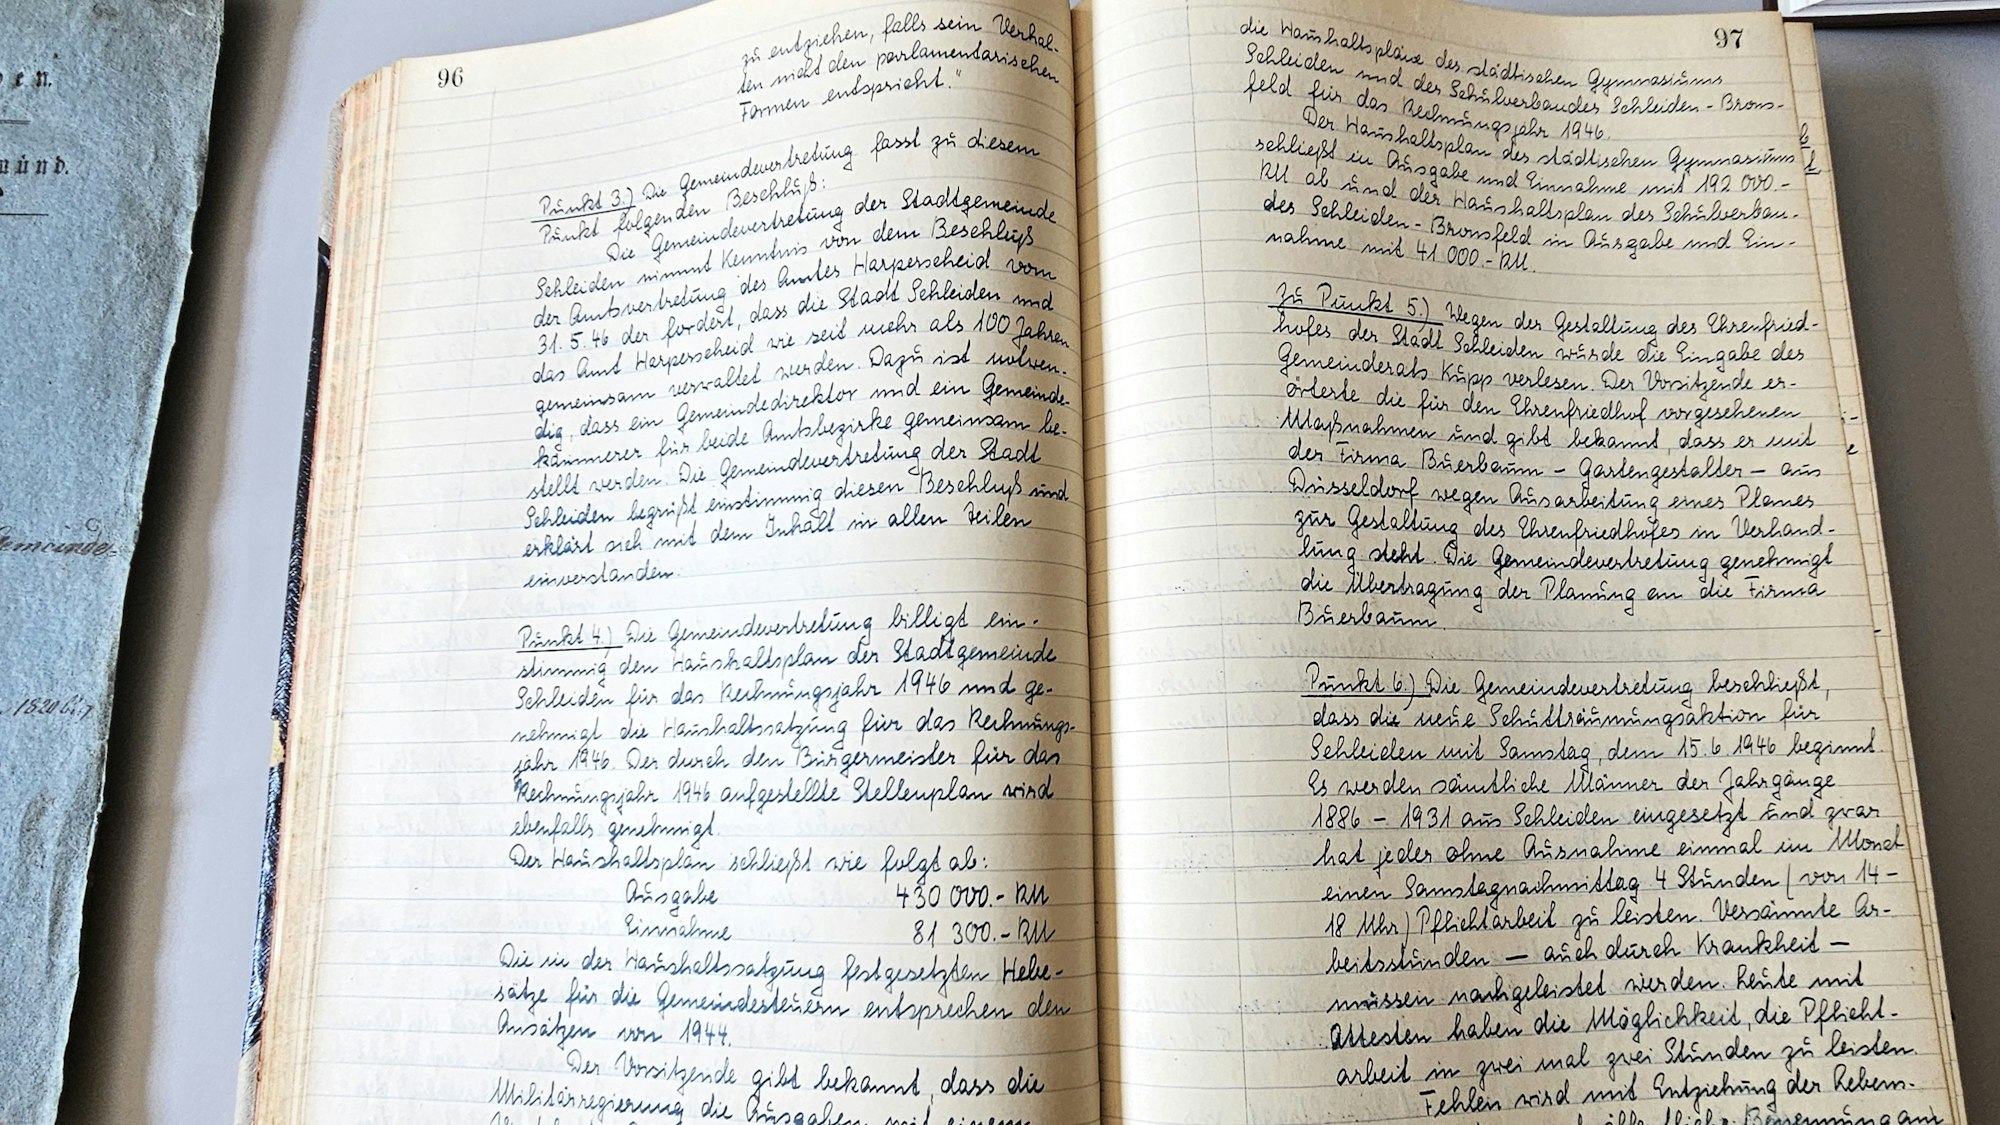 en.
münd.
Gemeinde-
1820 bis
96
zu entziehen, falls sein Verhal-
ten nicht den parlamentarischen
Formen entspricht."
Punkt 3.) Die Gemeindevertretung fasst zu diesem
Punkt folgenden Beschluß:
Die Gemeindevertretung der Stadtgemeinde
Schleiden nimmt Kenntnis von dem Beschluß
der Amtsvertretung des Amtes Harperscheid vom
31.5.46 der fordert, dass die Stadt Schleiden und
das Amt Harperscheid wie seit mehr als 100 Jahren
gemeinsam verwaltet werden. Dazu ist notwen-
dig, dass ein Gemeindedirektor und ein Gemeinde-
kämmerer für beide Amtsbezirke gemeinsam be-
stellt werden. Die Gemeindevertretung der Stadt
Schleiden begrüßt einstimmig diesen Beschluß und
erklärt sich mit dem Inhalt in allen Teilen
einverstanden.
Punkt 4.) Die Gemeindevertretung billigt ein-
stimmig den Haushaltsplan der Stadtgemeinde
Schleiden für das Rechnungsjahr 1946 und ge-
nehmigt die Haushaltssatzung für das Rechnungs-
jahr 1946. Der durch den Bürgermeister für das
Rechnungsjahr 1946 aufgestellte Stellenplan wird
ebenfalls genehmigt.
Der Haushaltsplan schließt wie folgt ab:
Ausgabe 430 000.- RM
Einnahme 81 300.- RM
Die in der Haushaltssatzung festgesetzten Hebe-
sätze für die Gemeindesteuern entsprechen den
Ansätzen von 1944.
Der Vorsitzende gibt bekannt, dass die
Militärregierung die Ausgaben mit einem
97
die Haushaltspläne des städtischen Gymnasiums
Schleiden und des Schulverbandes Schleiden - Brons-
feld für das Rechnungsjahr 1946.
Der Haushaltsplan des städtischen Gymnasiums
schließt in Ausgabe und Einnahme mit 192 000.-
RM ab und der Haushaltsplan des Schulverban-
des Schleiden - Bronsfeld in Ausgabe und Ein-
nahme mit 41 000.- RM.
Zu Punkt 5.) Wegen der Gestaltung des Ehrenfried-
hofes der Stadt Schleiden wurde die Eingabe des
Gemeinderats Küpp verlesen. Der Vorsitzende er-
örterte die für den Ehrenfriedhof vorgesehenen
Maßnahmen und gibt bekannt, dass er mit
der Firma Buerbaum - Gartengestalter - aus
Düsseldorf wegen Ausarbeitung eines Planes
zur Gestaltung des Ehrenfriedhofes in Verhand-
lung steht. Die Gemeindevertretung genehmigt
die Übertragung der Planung an die Firma
Buerbaum.
Punkt 6.) Die Gemeindevertretung beschließt,
dass die neue Schutträumungsaktion für
Schleiden mit Samstag, dem 15.6.1946 beginnt.
Es werden sämtliche Männer der Jahrgänge
1886 - 1931 aus Schleiden eingesetzt und zwar
hat jeder ohne Ausnahme einmal im Monat
einen Samstagnachmittag 4 Stunden (von 14-
18 Uhr) Pflichtarbeit zu leisten. Versäumte Ar-
beitsstunden — auch durch Krankheit —
müssen nachgeleistet werden. Leute mit
Attesten haben die Möglichkeit, die Pflicht-
arbeit in zwei mal zwei Stunden zu leisten.
Fehlen wird mit Entziehung der Lebens-
Benennung am